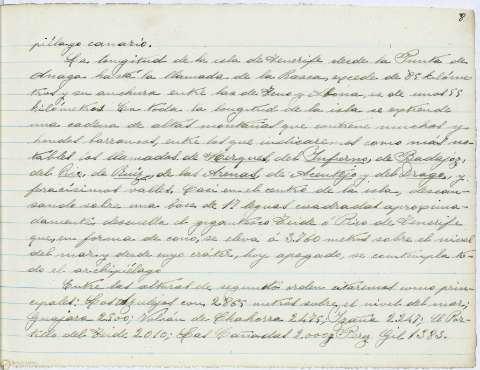 8
piélago canario.
La longitud de la isla de Tenerife desde la Punta de
Anaga hasta la llamada de la Rasca, excede de 85 kilóme-
tros, y su anchura entre las de Teno y Abona, es de unos 55
kilómetros. En toda la longitud de la isla se extiende
una cadena de altas montañas que contiene muchos y
hondos barrancos, entre los que indicaremos como más no-
tables los llamados de Herques, del Infierno, de Badajoz,
del Río, de Ruiz, de las Arenas, de Acentejo y del Drago, y
feracísimos valles. Casi en el centro de la isla, descan-
sando sobre una base de 17 leguas cuadradas aproxima-
damente, descuella el gigantesco Teide ó Pico de Tenerife
que, en forma de cono, se eleva á 3.760 metros sobre el nivel
del mar, y desde cuyo cráter, hoy apagado, se contempla to-
do el archipiélago.
Entre las alturas de segundo orden citaremos como prin-
cipales: Los Azulejos con 2.865 metros sobre el nivel del mar;
Guajara 2500; Volcán de Chahorra 2475; Izaña 2247; El Por-
tillo del Teide 2.010; Las Cañadas 2.000 y Pedro Gil 1383.